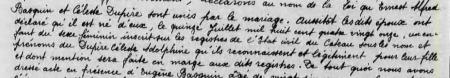 déclarons au nom de la loi qu'Ernest Alfred
Basquin et Céleste Dupire sont unis par le mariage. Aussitôt les dits époux ont
déclaré qu'il est né d'eux, le quinze Juillet mil huit cent quatre vingt onze, un en-
fant du sexe féminin inscrit sur les registres de l'État civil du Cateau sous les nom et
prénoms de Dupire Céleste Adolphine qu'ils reconnaissent et légitiment pour leur fille
et dont mention sera faite en marge aux dits registres. De tout quoi nous avons
dressé acte en présence d'Eugène Basquin âgé de